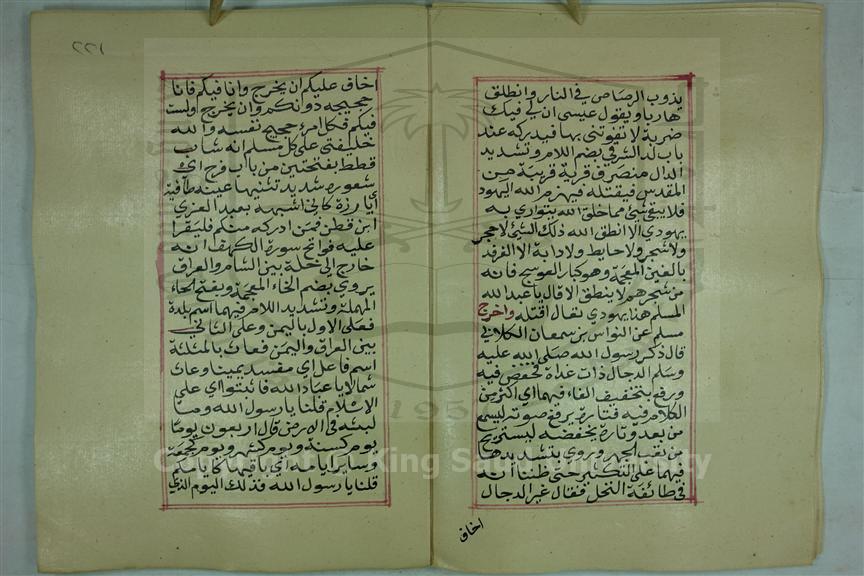 يذوب الرصاص في النار وانطلق
هاربا ويقول عيسى ان لي فيك
ضربة لا تفوتني بها فيدركه عند
باب لد الشرقي بضم اللام وتشديد
الدال منصرف قرية قريبة من
المقدس فيقتله فيهزم الله اليهود
فلا يبقى شئ مما خلق الله يتوارى به
يهودي الا انطق الله ذلك الشئ لا حجر
ولا شجر ولا حايط ولا دابة الا الغرقد
بالغين المعجمة وهو كبار العوسج فانه
من شجرهم لا ينطق الا قال يا عبد الله
المسلم هذا يهودي تعال اقتله واخرج
مسلم عن النواس بن سمعان الكلابي
قال ذكر رسول الله صلى الله عليه
وسلم الدجال ذات غداة فخفض فيه
ورفع بتخفيف الفاء فيهما اي اكثر من
الكلام فيه فتارة يرفع صوته ليسمع
من بعد وتارة يخفضه ليستريح
من تعب الجهر وروي بتشديدها
فيهما على التكثير حتى ظننا انه
في طائفة النخل فقال غير الدجال
اخاف
٢٢١
اخاف عليكم ان يخرج وانا فيكم فانا
حجيجه دونكم وان يخرج ولست
فيكم فكل امرء حجيج نفسه والله
خليفتي على كل مسلم انه شاب
قطط بفتحتين من باب فرح اي
شعوره شديد تثنيها عينه طافية
اي بارزة كاني اشبهه بعبد العزى
ابن قطن فمن ادركه منكم فليقرا
عليه فواتح سورة الكهف انه
خارج الى خلة بين الشام والعراق
يروي بضم الخاء المعجمة وبفتح الحاء
المهملة وتشديد اللام فيهما اسم بلدة
فعلى الاول باليمن وعلى الثاني
بين العراق واليمن فعاث بالمثلثة
اسم فاعل اي مفسد يمينا وعاث
شمالا يا عباد الله فاثبتوا اي على
الاسلام قلنا يا رسول الله وما
لبثه في الارض قال اربعون يوما
يوم كسنة ويوم كشهر ويوم كجمعة
وساير ايامه اي باقيها كايامكم
قلنا يا رسول الله فذلك اليوم الذي
Copyright © King Saud University
195